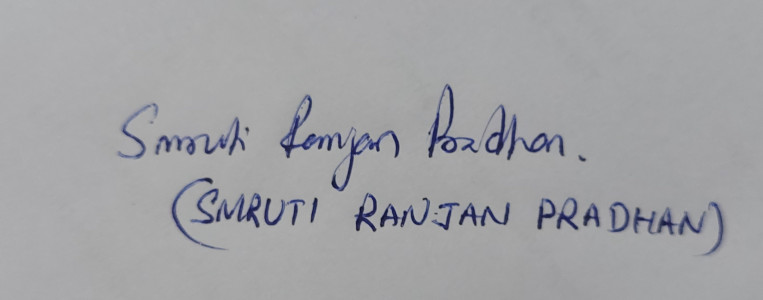 Smruti Ranjan Pradhan.
(SMRUTI RANJAN PRADHAN)